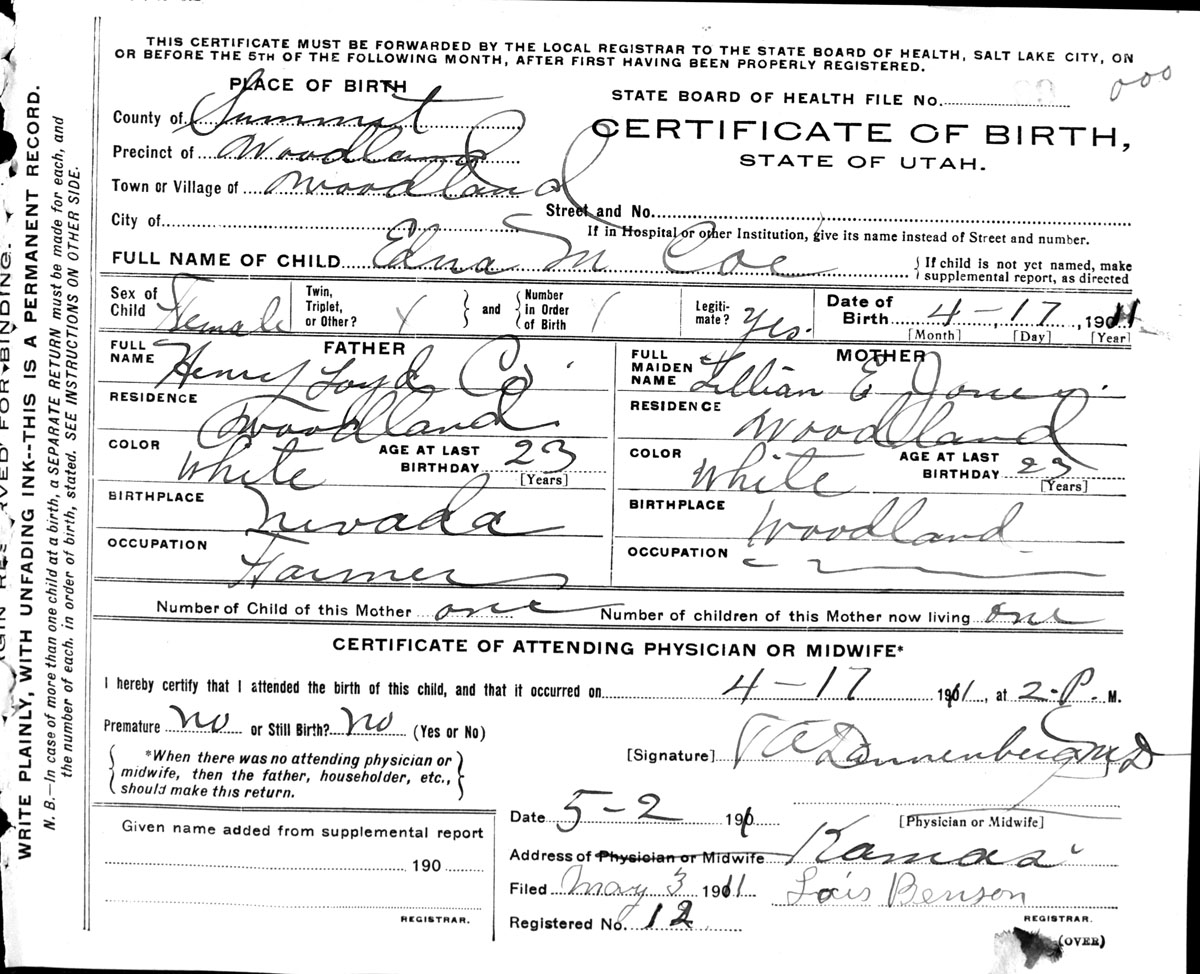 THIS CERTIFICATE MUST BE FORWARDED BY THE LOCAL REGISTRAR TO THE STATE BOARD OF HEALTH, SALT LAKE CITY, ON
OR BEFORE THE 5TH OF THE FOLLOWING MONTH, AFTER FIRST HAVING BEEN PROPERLY REGISTERED.
000
PLACE OF BIRTH
STATE BOARD OF HEALTH FILE No.
County of Summit
CERTIFICATE OF BIRTH,
STATE OF UTAH.
Precinct of Woodland
Town or Village of Woodland
Street and No.
City of
If in Hospital or other Institution, give its name instead of Street and number.
FULL NAME OF CHILD Edna M Coe
{ If child is not yet named, make
supplemental report, as directed
Sex of Child Female
Twin, Triplet, or Other?
and
Number in Order of Birth
Legiti-mate? Yes.
Date of Birth 4-17, 1911
[Month] [Day] [Year]
FATHER
FULL NAME Henry Loyd Co
MOTHER
FULL MAIDEN NAME Lillian E Jones
RESIDENCE Woodland
RESIDENCE Woodland
COLOR White
AGE AT LAST BIRTHDAY 23
[Years]
COLOR White
AGE AT LAST BIRTHDAY 23
[Years]
BIRTHPLACE Nevada
BIRTHPLACE Woodland
OCCUPATION Farmer
OCCUPATION
Number of Child of this Mother one
Number of children of this Mother now living one
CERTIFICATE OF ATTENDING PHYSICIAN OR MIDWIFE*
I hereby certify that I attended the birth of this child, and that it occurred on 4-17 1911, at 2-P. M.
Premature No or Still Birth? No (Yes or No)
[Signature] Dannenberg MD
{ *When there was no attending physician or
midwife, then the father, householder, etc.,
should make this return. }
[Physician or Midwife]
Date 5-2 191
Address of Physician or Midwife Kamas
Given name added from supplemental report
190
REGISTRAR.
Filed May 3 1911
Lois Benson
REGISTRAR.
Registered No. 12
(OVER)
WRITE PLAINLY, WITH UNFADING INK--THIS IS A PERMANENT RECORD.
N. B.—In case of more than one child at a birth, a SEPARATE RETURN must be made for each, and
the number of each, in order of birth, stated. SEE INSTRUCTIONS ON OTHER SIDE.
FOR BINDING.